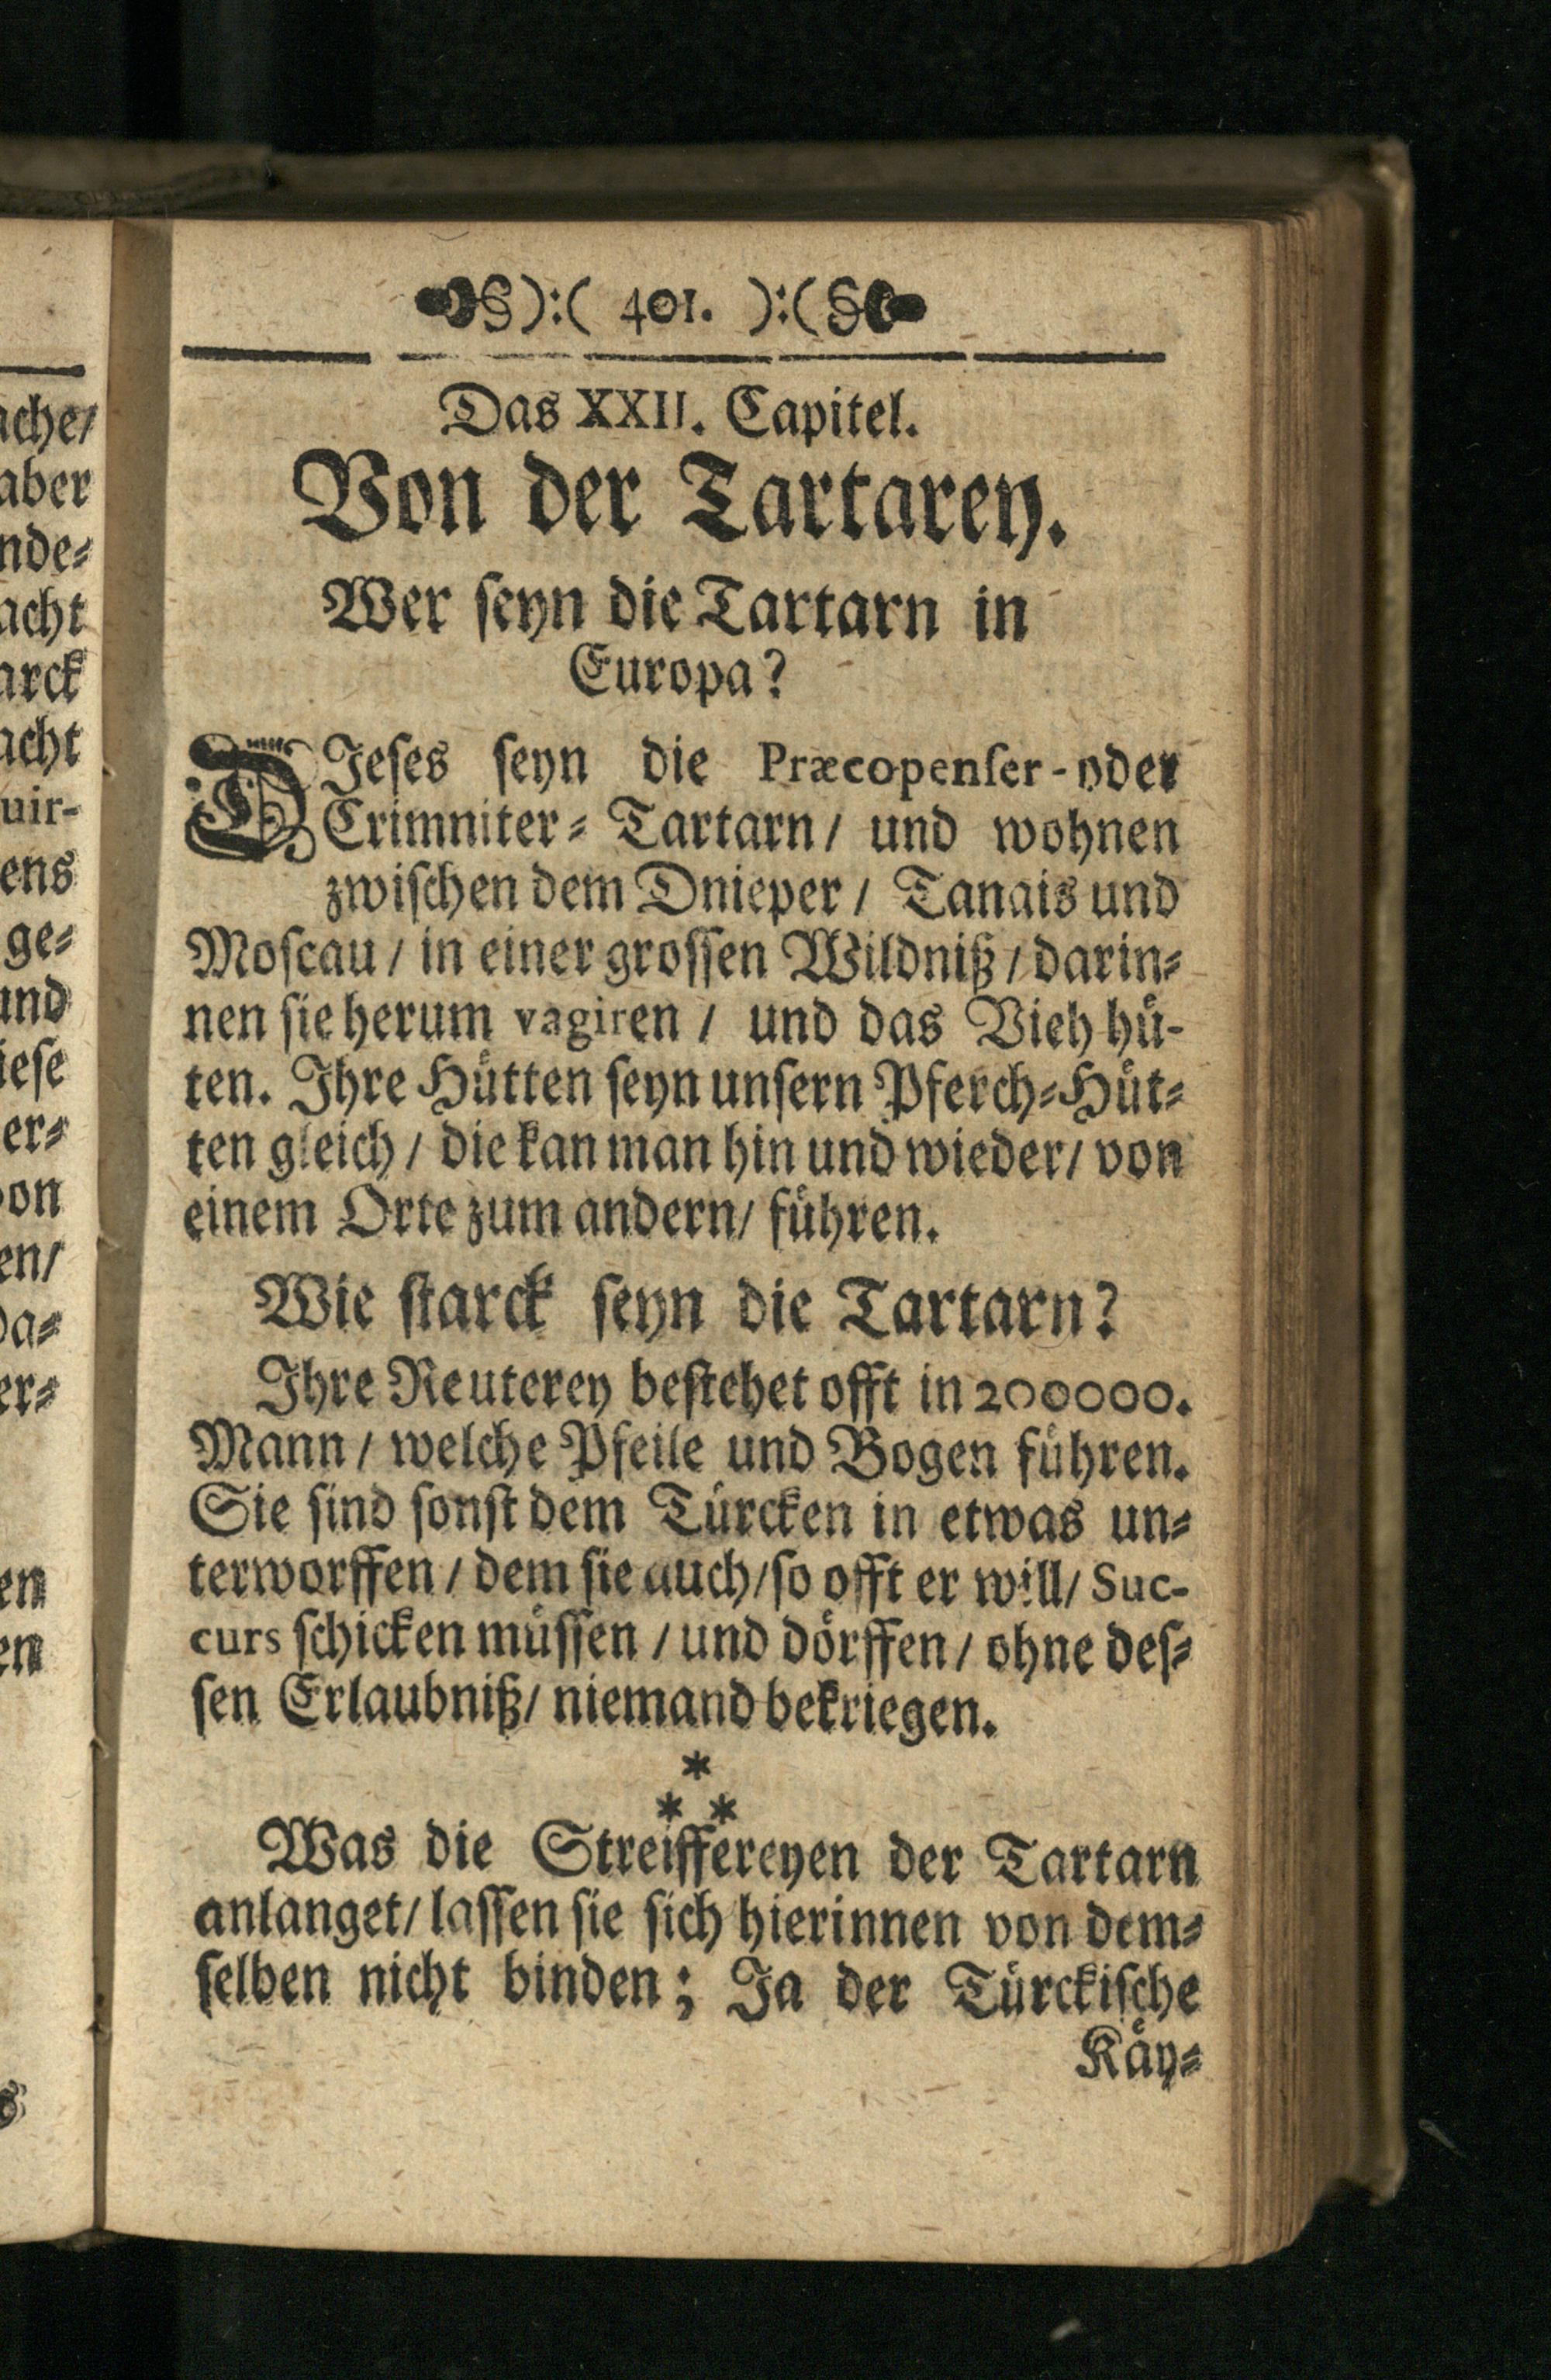 ache/
aber
nde⸗
acht
arck
acht
uir-
ens
ge⸗
und
iese
er⸗
on
en/
da⸗
er⸗
en
en
§):( 401. ):(§
Das XXII. Capitel.
Von der Tartarey.
Wer seyn die Tartarn in
Europa?
DIeses seyn die Præcopenser-oder
Crimniter⸗ Tartarn/ und wohnen
zwischen dem Dnieper/ Tanais und
Moscau/ in einer grossen Wildniß/ darin⸗
nen sie herum vagiren/ und das Vieh hü-
ten. Ihre Hütten seyn unsern Pferch⸗Hüt⸗
ten gleich/ die kan man hin und wieder/ von
einem Orte zum andern/ führen.
Wie starck seyn die Tartarn?
Ihre Reuterey bestehet offt in 200000.
Mann/ welche Pfeile und Bogen führen.
Sie sind sonst dem Türcken in etwas un⸗
terworffen/ dem sie auch/ so offt er will/ Suc-
curs schicken müssen/ und dörffen/ ohne des⸗
sen Erlaubniß/ niemand bekriegen.
*
* *
Was die Streiffereyen der Tartarn
anlanget/ lassen sie sich hierinnen von dem⸗
selben nicht binden; Ja der Türckische
Käy⸗